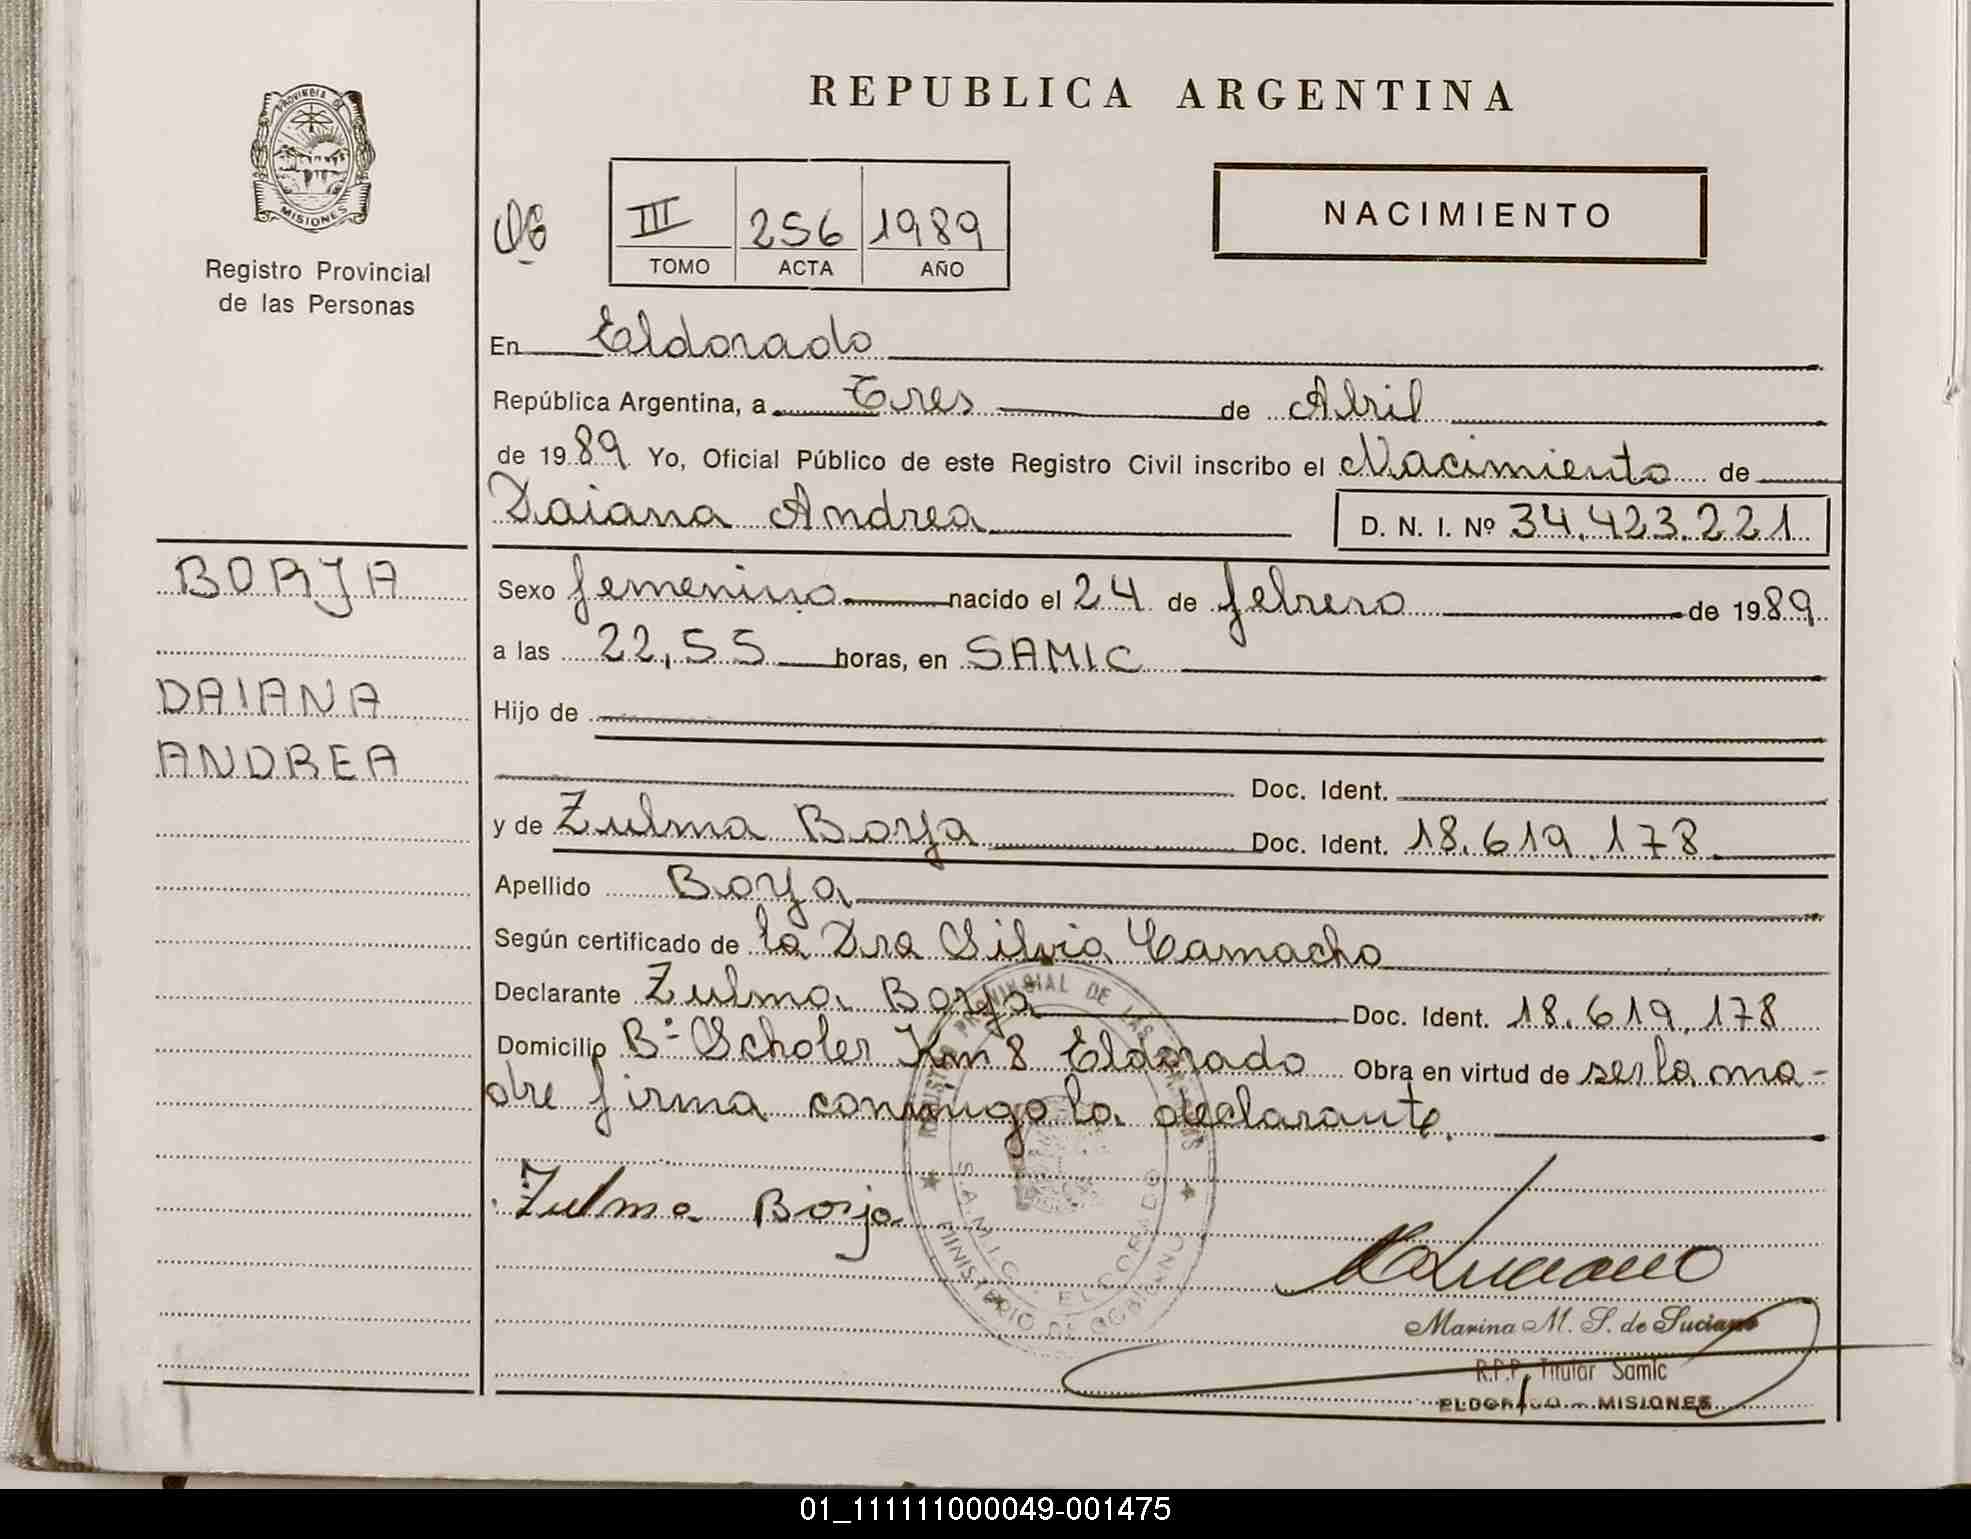 REPUBLICA ARGENTINA
PROVINCIA DE
MISIONES
Registro Provincial
de las Personas
III 256 1989
TOMO ACTA AÑO
NACIMIENTO
En Eldorado
República Argentina, a Tres de Abril
de 1989 Yo, Oficial Público de este Registro Civil inscribo el Nacimiento de
Daiana Andrea D. N. I. Nº 34.423.221
BORJA
DAIANA
ANDREA
Sexo femenino nacido el 24 de febrero de 1989
a las 22,55 horas, en SAMIC
Hijo de
Doc. Ident.
y de Zulma Borja Doc. Ident. 18.619.178
Apellido Borja
Según certificado de la Dra Silvia Camacho
Declarante Zulma Borja Doc. Ident. 18.619.178
Domicilio Bº Scholer Km 8 Eldorado Obra en virtud de ser la ma-
dre firma conmigo la declarante.
Zulma Borja
REGISTRO PROVINCIAL DE LAS PERSONAS
S.A.M.I.C. ELDORADO
MINISTERIO DE GOBIERNO
Marina M. S. de Luciano
R.P.P. Titular Samic
ELDORADO - MISIONES
01_111111000049-001475